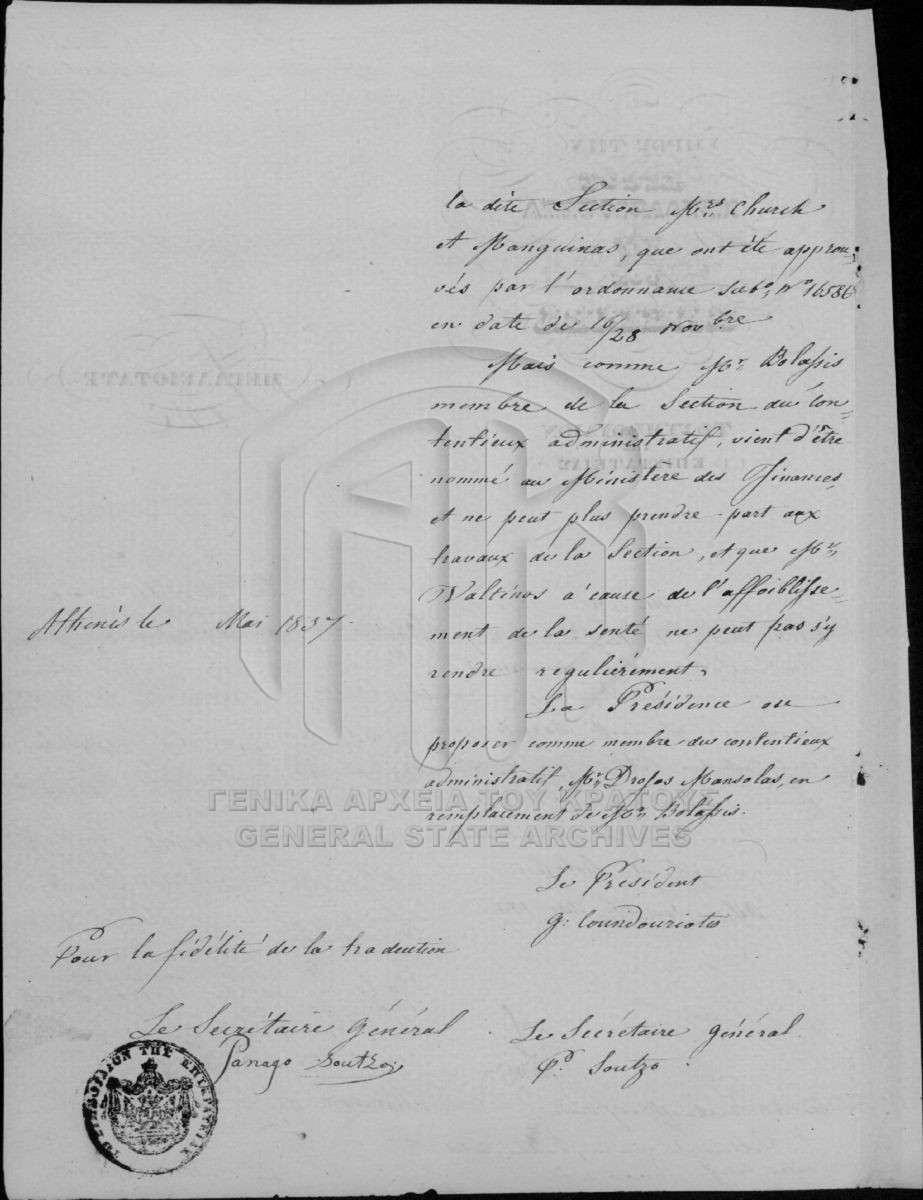 la dite Section Mrs Church
et Manguinas, que ont été approu-
vés par l'ordonnance sub No 16586
en date de 16/28 Novbre
Mais comme Mr. Bolassis
membre de la Section du Con-
tentieux administratif, vient d'être
nommé au Ministere des Finances
et ne peut plus prendre part aux
travaux de la Section, et que Mr.
Valtinos à cause de l'affoiblisse-
ment de la senté ne peut pas s'y
rendre reguliérement,
La Présidence ose
proposer comme membre du contentieux
administratif, Mr. Drosos Mansolas, en
remplacement de Mr. Bolassis.
Athenès le Mai 1837.
Le President
G. Coundouriotis
Pour la fidélité de la traduction
Le Secrétaire Général
Panago Soutzos
Le Secrétaire Général
P. Soutzo
ΤΟ ΣΥΜΒΟΥΛΙΟΝ ΤΗΣ ΕΠΙΚΡΑΤΕΙΑΣ
ΓΕΝΙΚΑ ΑΡΧΕΙΑ ΤΟΥ ΚΡΑΤΟΥΣ
GENERAL STATE ARCHIVES